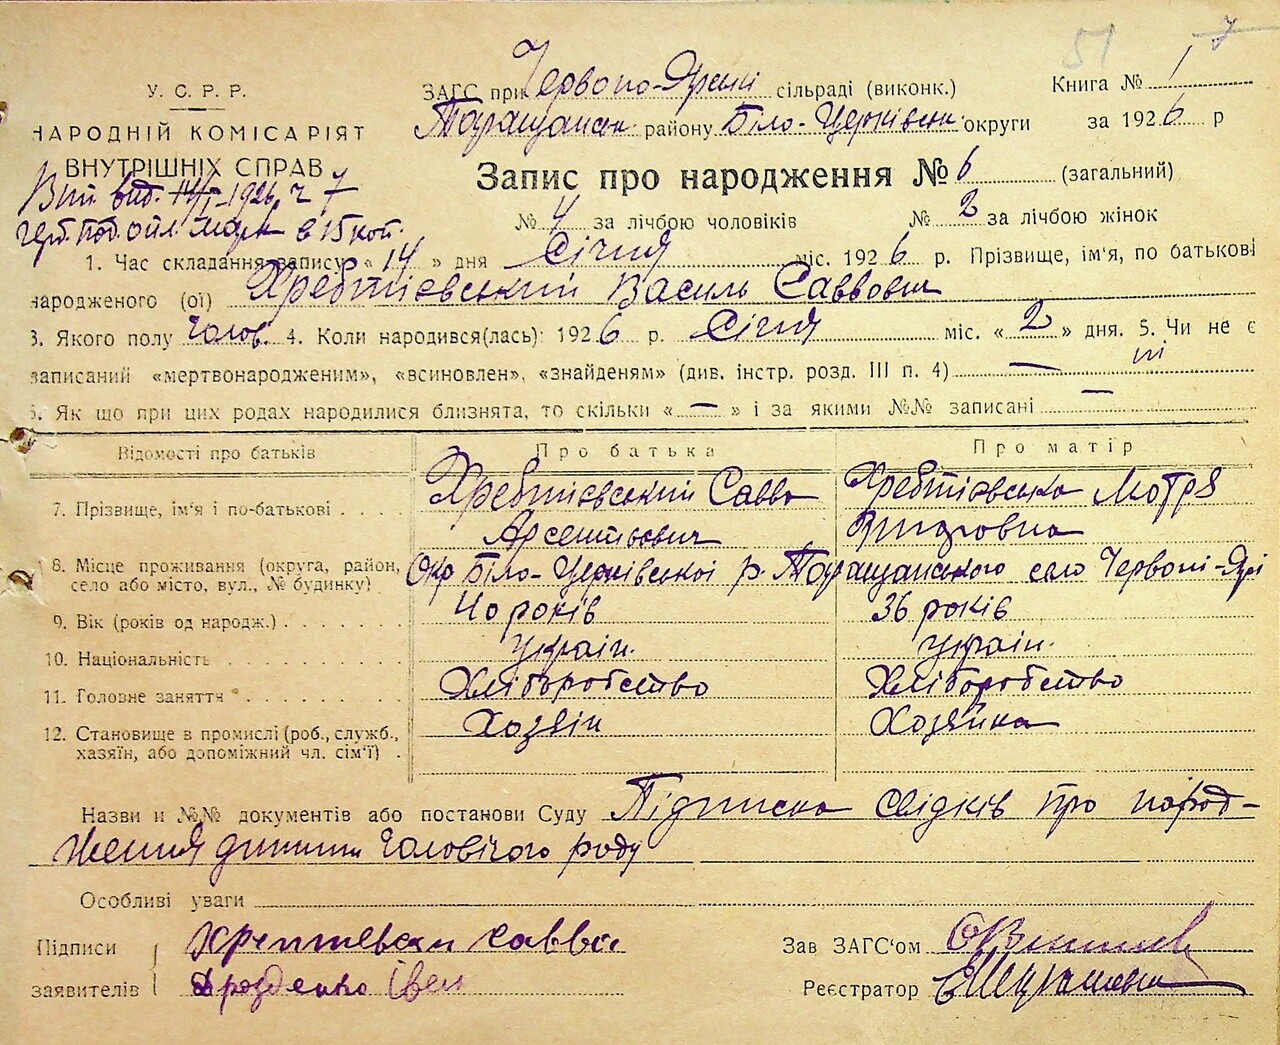 51 7
У. С. Р. Р.
НАРОДНІЙ КОМІСАРІЯТ
ВНУТРІШНІХ СПРАВ
Вит. вид. 14/I-1926 ч 7
герб. поб. опл. марк. в 15 коп.
ЗАГС при Червоно-Ярській сільраді (виконк.) Книга № 1
Таращанськ. району Біло-Церківськ. округи за 1926 р
Запис про народження № 6 (загальний)
№ 4 за лічбою чоловіків № 2 за лічбою жінок
1. Час складання запису « 14 » дня Січня міс. 1926 р. Прізвище, ім'я, по батькові
народженого (ої) Хребтієвський Василь Саввович
3. Якого полу Чолов. 4. Коли народився(лась): 1926 р. Січня міс. « 2 » дня. 5. Чи не є
записаний «мертвонародженим», «всиновлен», «знайденям» (див. інстр. розд. III п. 4) — ні
6. Як що при цих родах народилися близнята, то скільки « — » і за якими №№ записані —
Відомості про батьків Про батька Про матір
7. Прізвище, ім'я і по-батькові Хребтієвський Савва Хребтієвська Мотря
Арсентьович
8. Місце проживання (округа, район, Окр Біло-Церківської р. Таращанського село Червоні-Ярі
село або місто, вул., № будинку)
9. Вік (років од народж.) 40 років 36 років
10. Національність Україн. Україн.
11. Головне заняття Хліборобство Хліборобство
12. Становище в промислі (роб., служб., Хозяін Хозяйка
хазяїн, або допоміжний чл. сім'ї)
Назви и №№ документів або постанови Суду Підписка свідків про народ-
ження дитини чоловічого роду
Особливі уваги
Підписи Хрептевски Савва Зав ЗАГС'ом
заявителів Дрозденко Іван Реєстратор